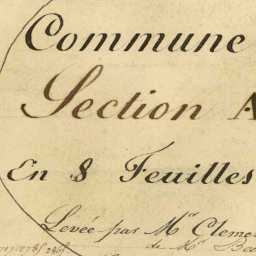 Commune
Section A
En 8 Feuilles
Levée par Mr Cleme
de Mr